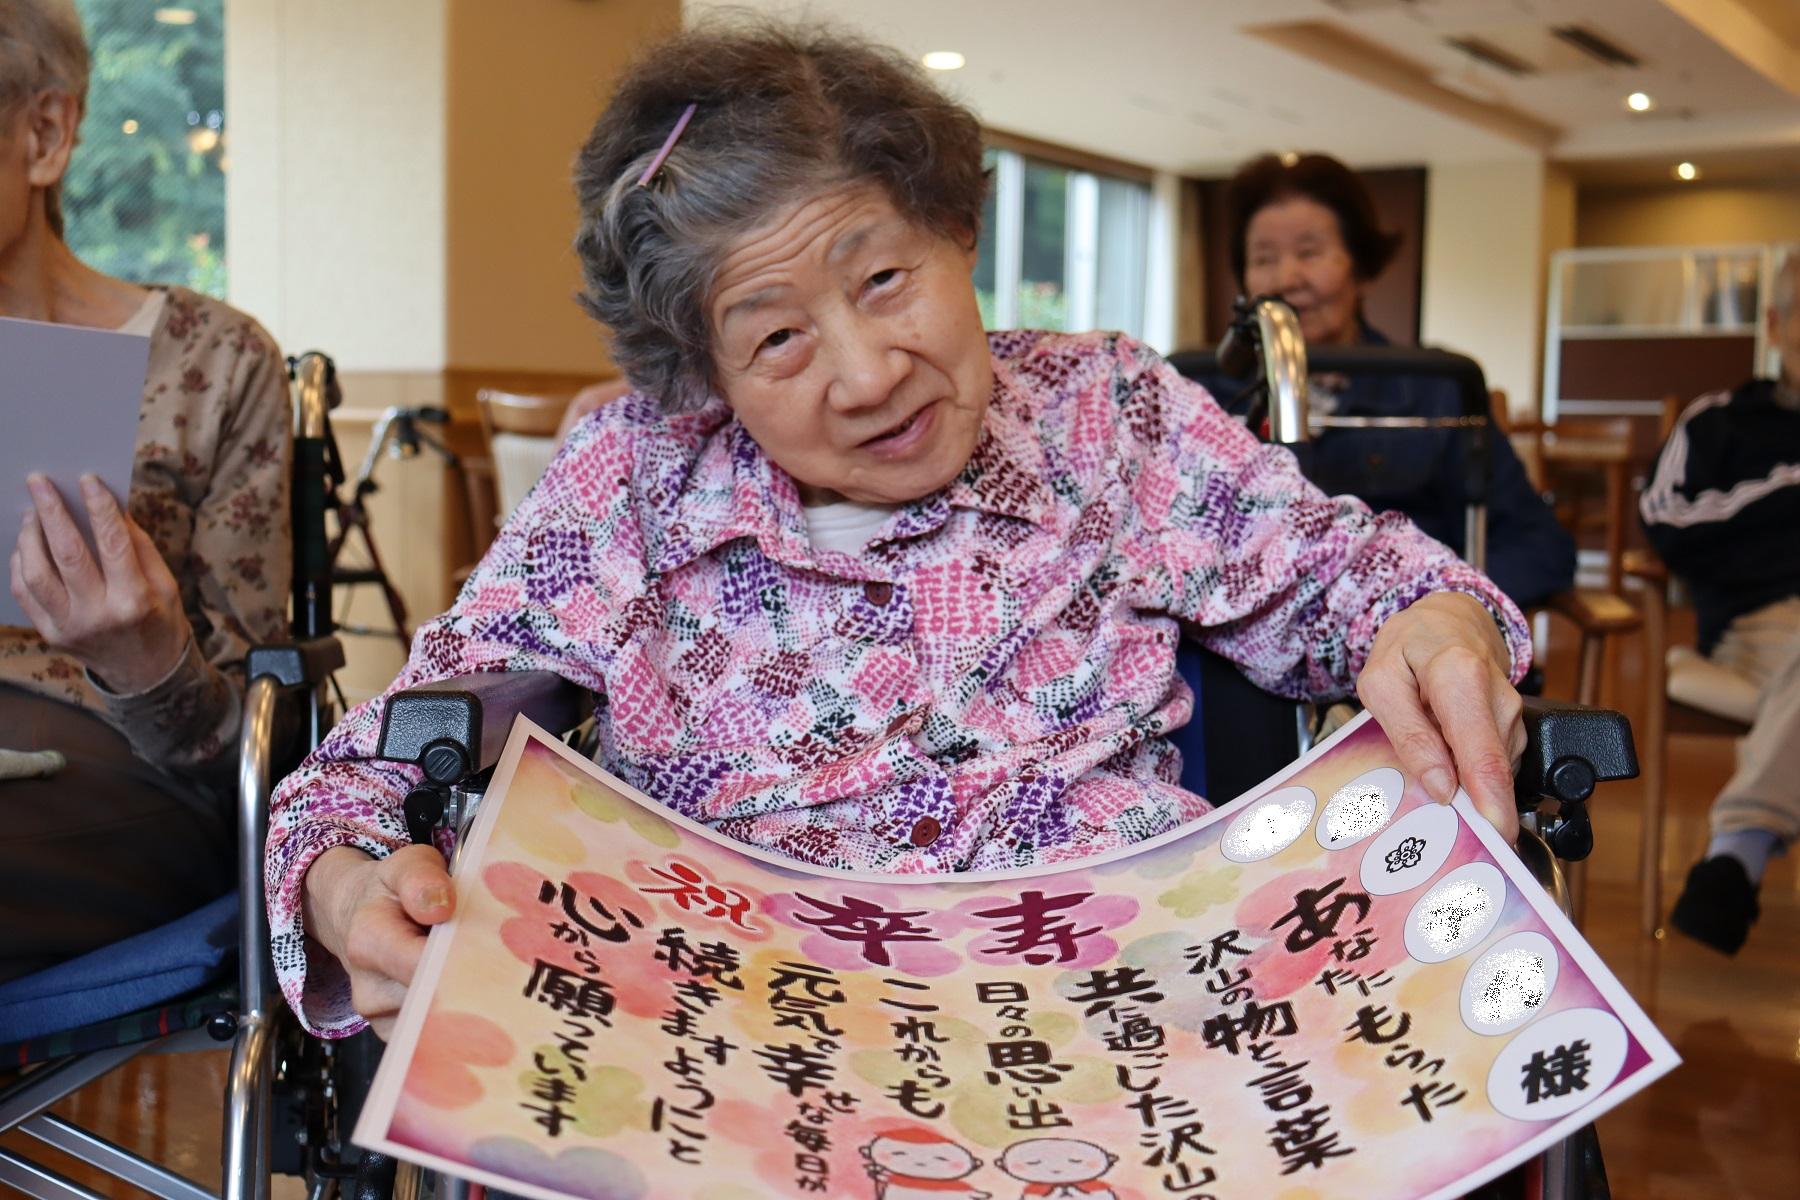 様
祝 卒寿
あなたにもらった
沢山の物と言葉
共に過ごした沢山の
日々の思い出
これからも
元気で幸せな毎日が
続きますようにと
心から願っています